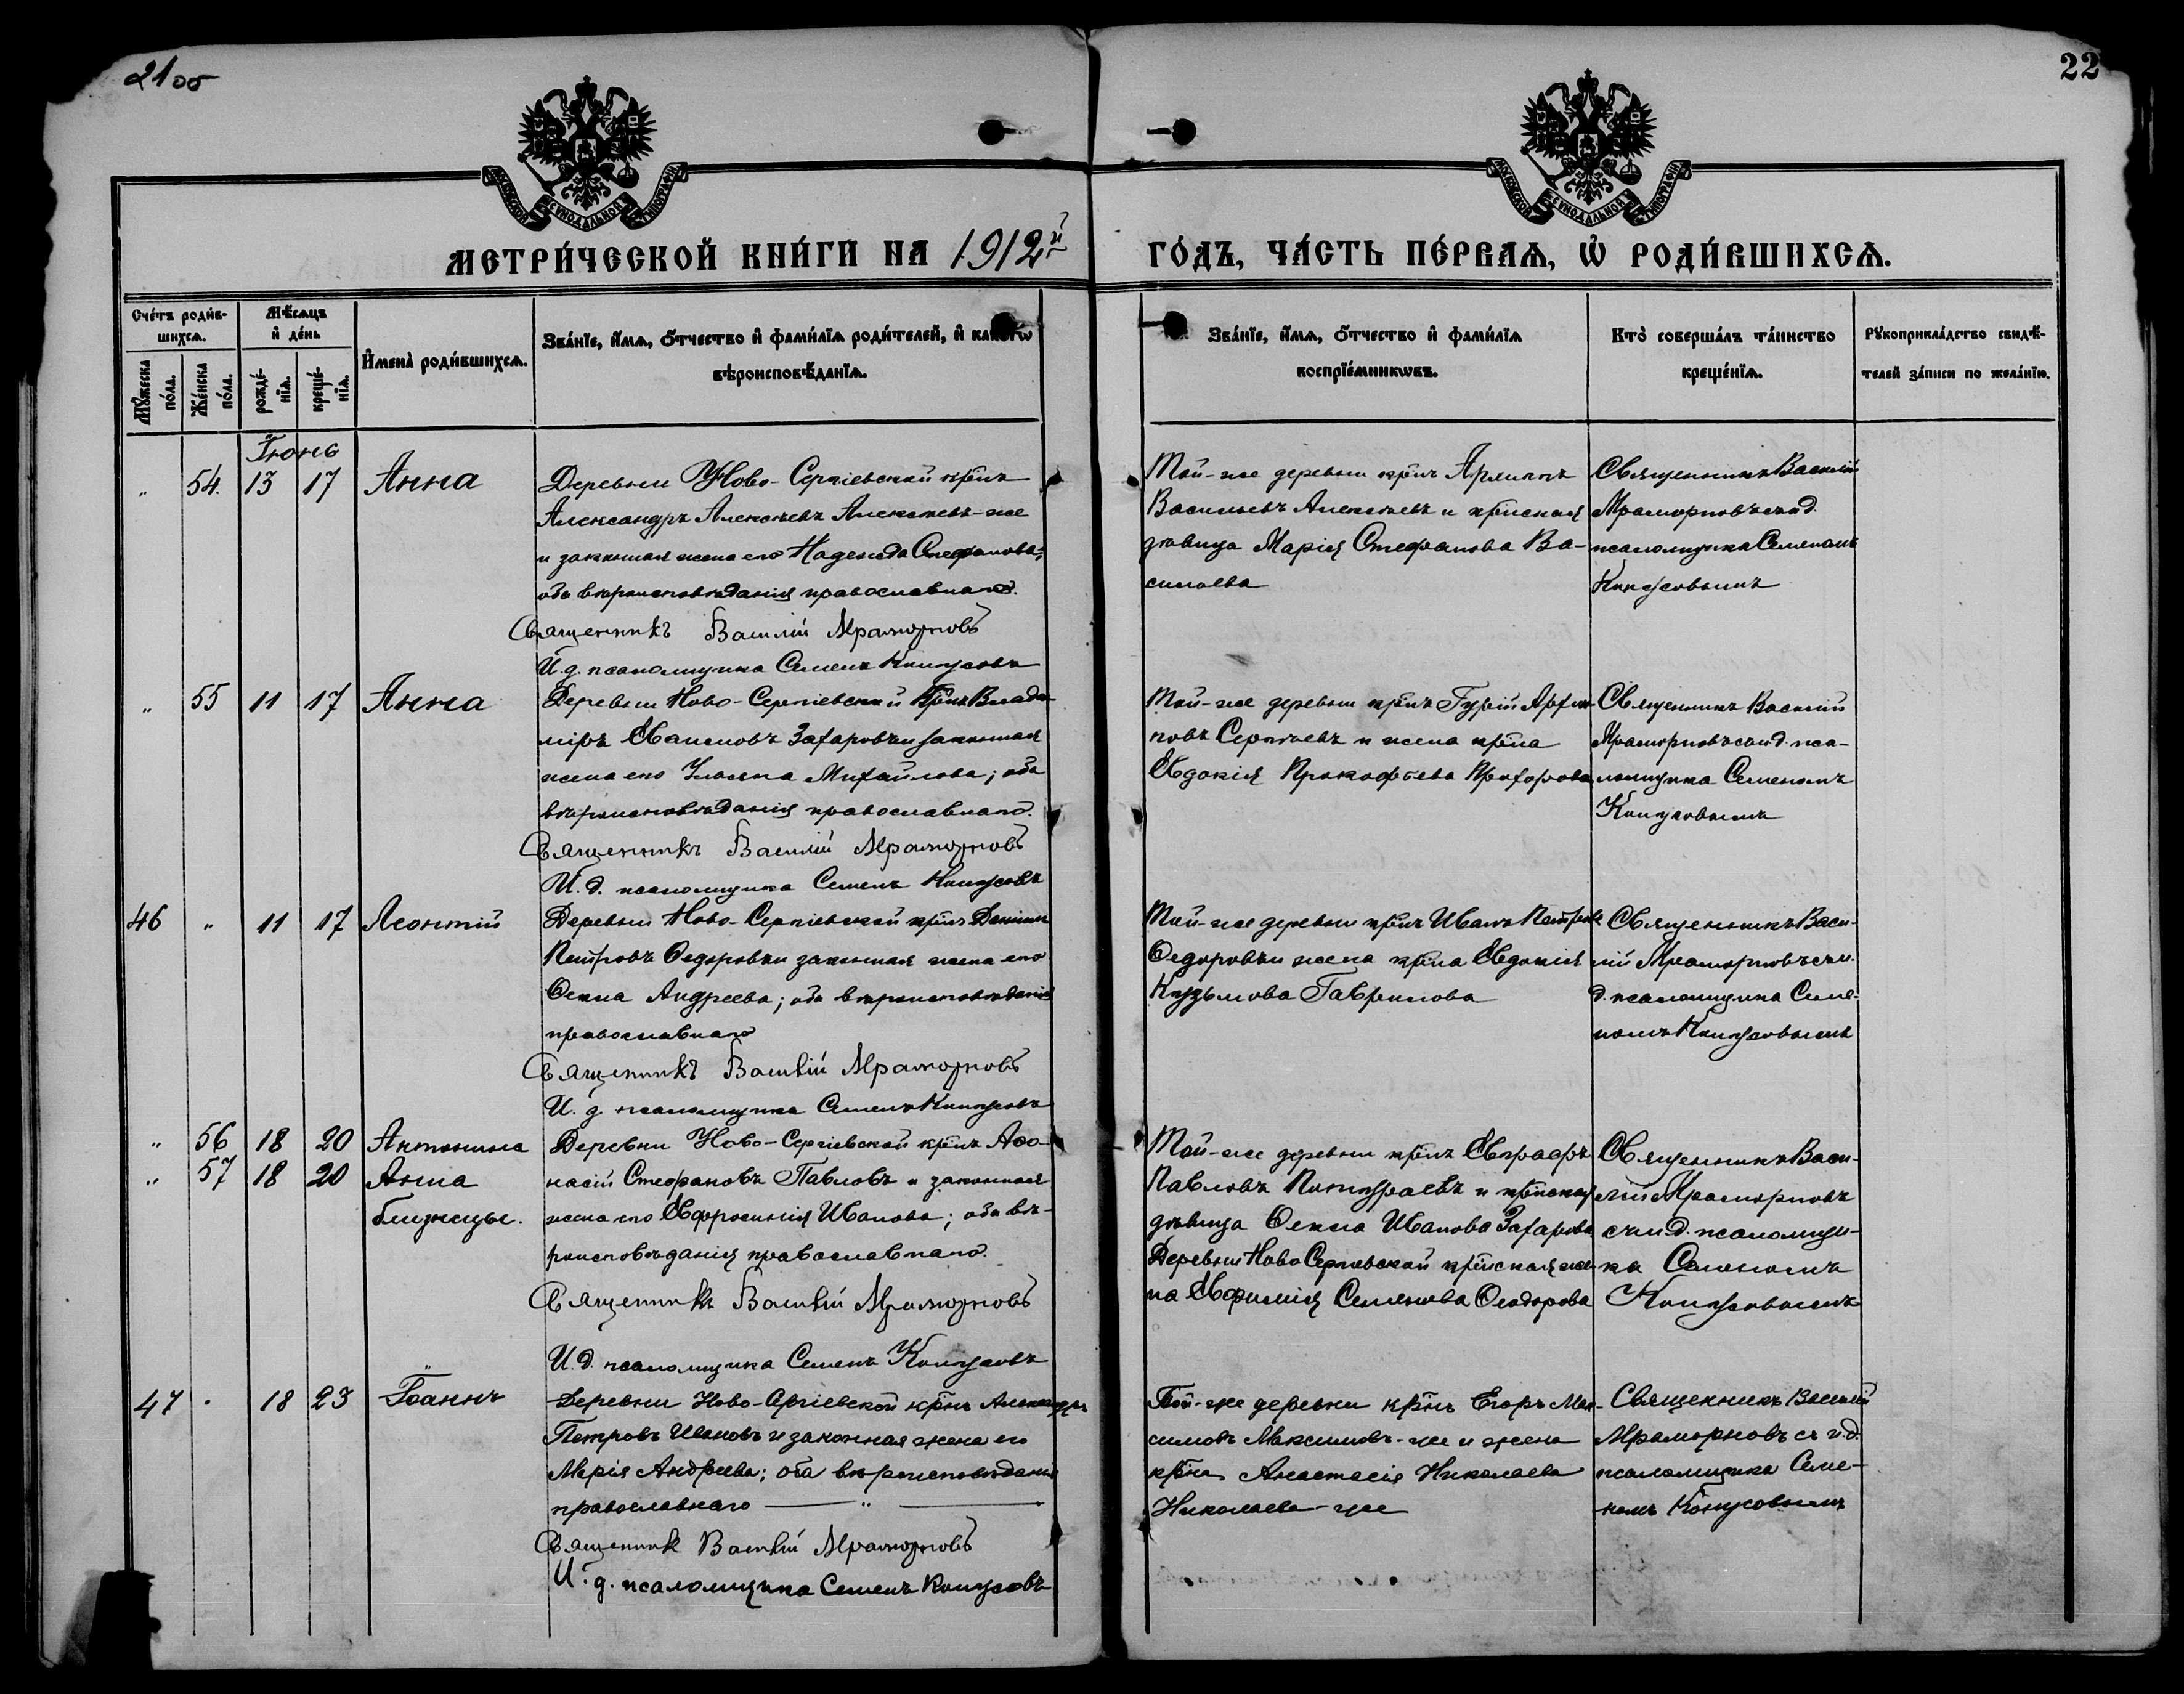 21об
22
МОСКОВСКОЙ СѴНОДАЛЬНОЙ ТИПОГРАФІИ
МОСКОВСКОЙ СѴНОДАЛЬНОЙ ТИПОГРАФІИ
МЕТРИ́ЧЕСКОЙ КНИ́ГИ НА 1912й
ГО́ДЪ, ЧА́СТЬ ПЕ́РВАѦ, Ѡ҆ РОДИ́ВШИХСѦ.
Сче́тъ роди́в-
шихсѧ.
Мꙋ́жеска по́ла.
Же́нска по́ла.
Мѣ́сѧцъ
и҆ де́нь
рожде́-
нїѧ.
креще́-
нїѧ.
И҆мена̀ роди́вшихсѧ.
Зва́нїе, и҆́мѧ, ѻ҆́тчество и҆ фами́лїѧ роди́телей, и҆ како́гѡ
вѣроисповѣ́данїѧ.
Зва́нїе, и҆́мѧ, ѻ҆́тчество и҆ фами́лїѧ
воспрїе́мникѡвъ.
Кто̀ соверша́лъ та́инство
креще́нїѧ.
Рꙋкоприкла́дство свидѣ́-
телей за́писи по жела́нїю.
Іюнь
„ 54. 13 17 Анна
Деревни Ново-Сергіевской крнъ
Александръ Алексѣевъ Алексѣевъ-же
и законная жена его Надежда Стефанова;
оба вѣроисповѣданія православнаго.
Священникъ Василій Мраморновъ
И.д. псаломщика Семенъ Конусовъ
Той-же деревни крнъ Архиппъ
Васильевъ Алексѣевъ и крнская
дѣвица Марія Стефанова Ва-
сильева
Священникъ Василій
Мраморновъ с и.д.
псаломщика Семеномъ
Конусовымъ
„ 55 11 17 Анна
Деревни Ново-Сергіевской крнъ Влади-
міръ Евгеновъ Захаровъ и законная
жена его Ульяна Михайлова; оба
вѣроисповѣданія православнаго.
Священникъ Василій Мраморновъ
И.д. псаломщика Семенъ Конусовъ
Той-же деревни крнъ Гурій Архип-
повъ Сергѣевъ и жена крна
Евдокія Прокофьева Прохорова
Священникъ Василій
Мраморновъ с и.д. пса-
ломщика Семеномъ
Конусовымъ
46 „ 11 17 Леонтій
Деревни Ново-Сергіевской крнъ Даніилъ
Петровъ Ѳедоровъ и законная жена его
Ѳекла Андреева; оба вѣроисповѣданія
православнаго
Священникъ Василій Мраморновъ
И.д. псаломщика Семенъ Конусовъ
Той-же деревни крнъ Иванъ Петровъ
Ѳедоровъ и жена крна Евдокія
Кузьмова Гаврилова
Священникъ Васи-
лій Мраморновъ с и.
д. псаломщика Семе-
номъ Конусовымъ
„ 56 18 20 Антонина
„ 57 18 20 Анна
близнецы.
Деревни Ново-Сергіевской крнъ Аѳа-
насій Стефановъ Павловъ и законная
жена его Евфросинія Иванова; оба вѣ-
роисповѣданія православнаго.
Священникъ Василій Мраморновъ
И.д. псаломщика Семенъ Конусовъ
Той-же деревни крнъ Евграфъ
Павловъ и крнская
дѣвица Ѳекла Иванова Захарова
Деревни Ново Сергіевской крнская же-
на Евфимія Семенова Ѳеодорова
Священникъ Васи-
лій Мраморновъ
с и д. псаломщи-
ка Семеномъ
Конусовымъ
47 „ 18 23 Іоаннъ
Деревни Ново-Сергіевской крнъ Александръ
Петровъ Ивановъ и законная жена его
Марія Андреева; оба вѣроисповѣданія
православнаго — „ —
Священникъ Василій Мраморновъ
И.д. псаломщика Семенъ Конусовъ
Той-же деревни крнъ Егоръ Мак-
симовъ Максимовъ-же и жена
крна Анастасія Николаева
Николаева-же
Священникъ Василій
Мраморновъ съ и.д.
псаломщика Семе-
номъ Конусовымъ